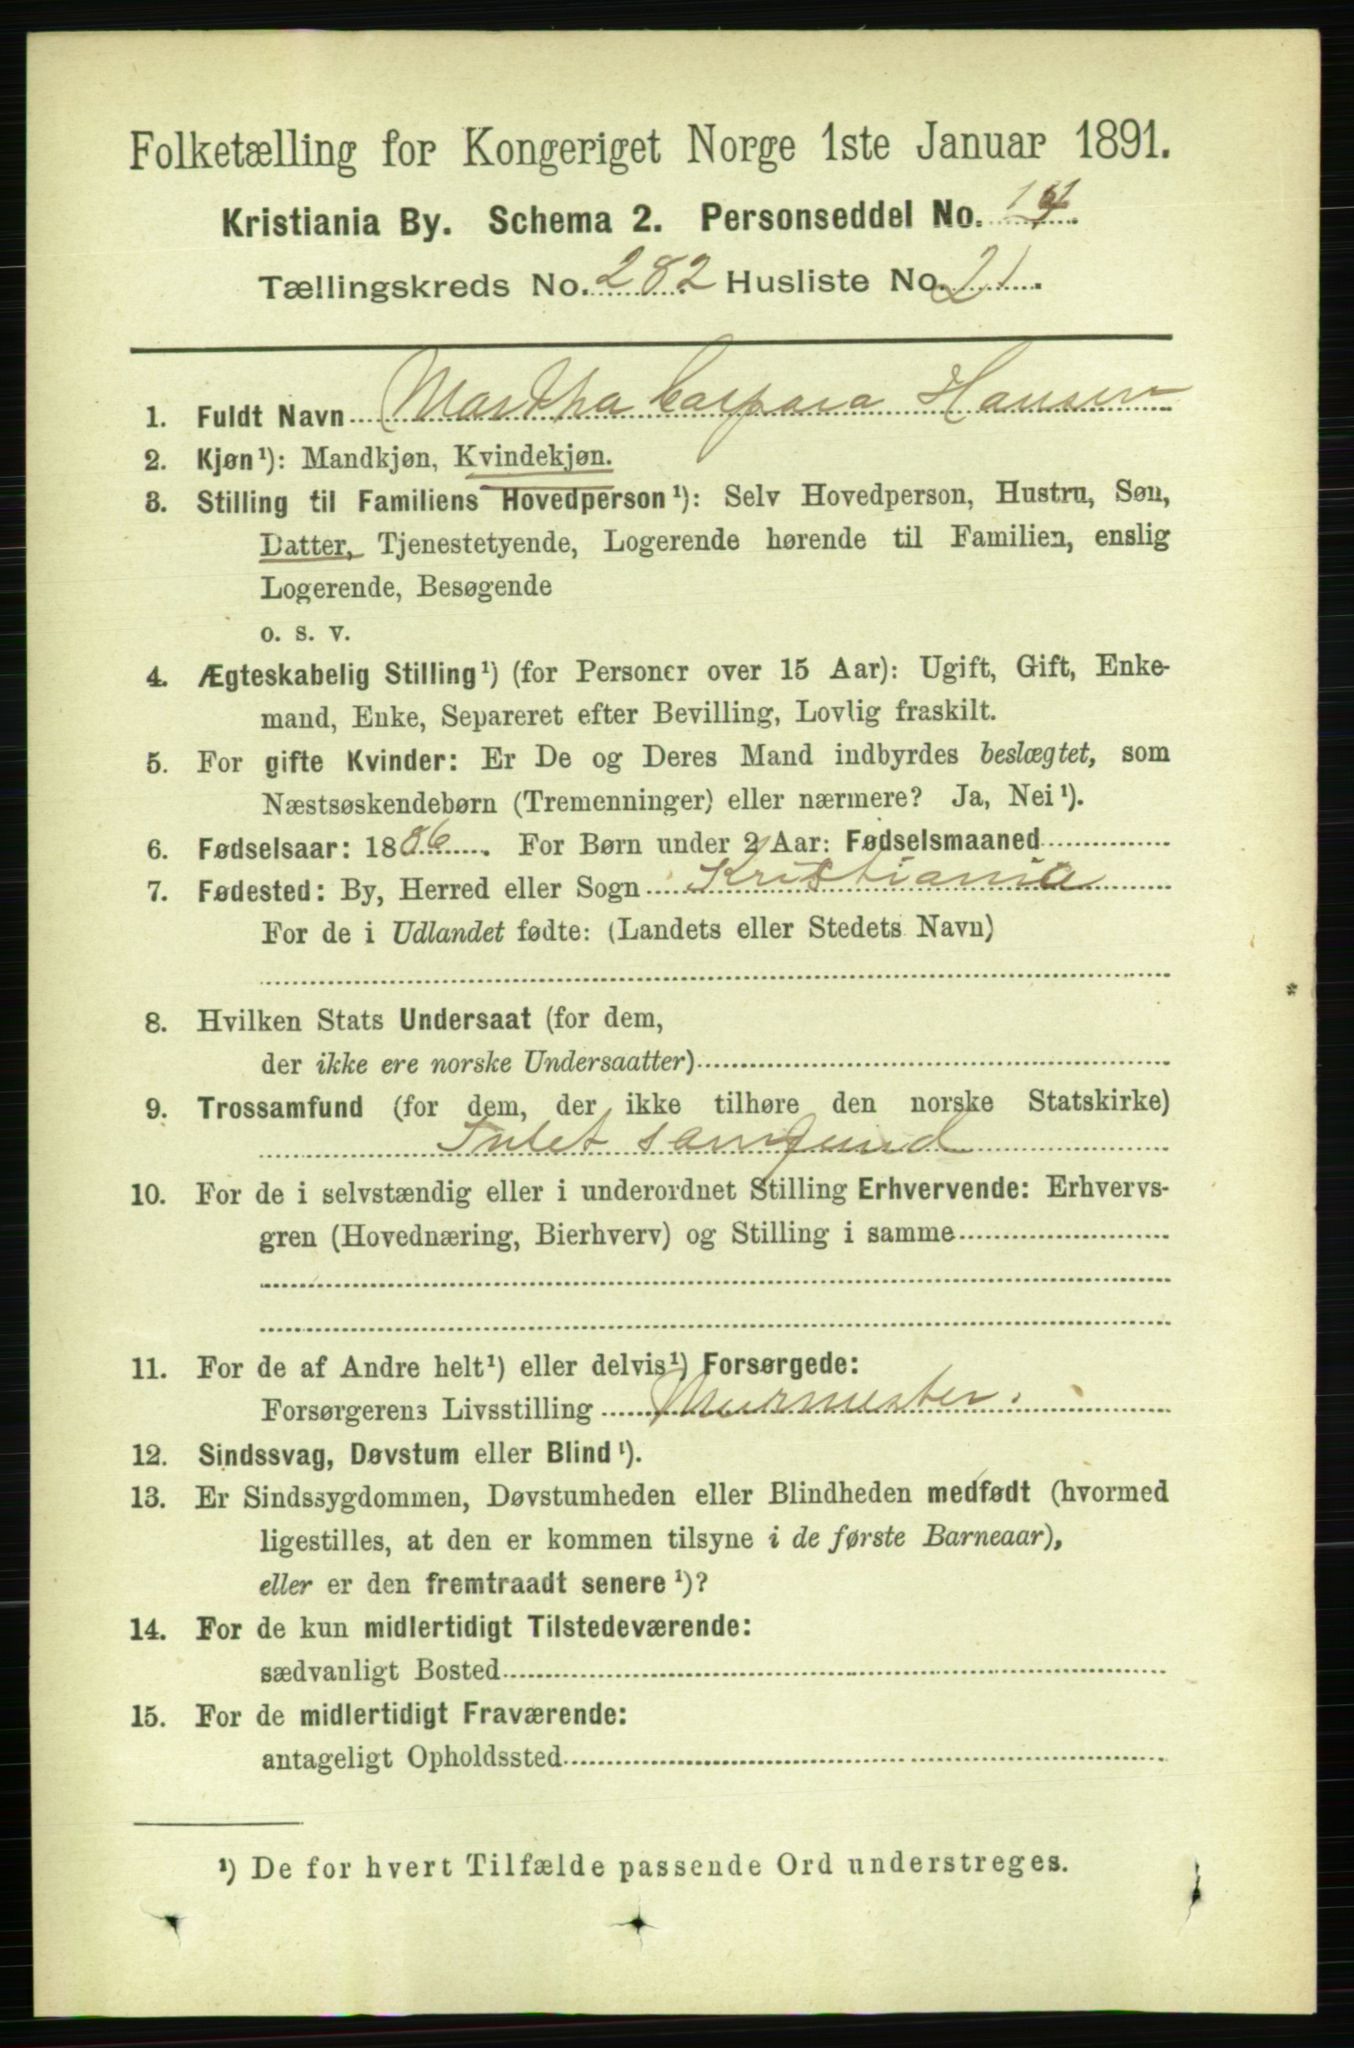 Folketælling for Kongeriget Norge 1ste Januar 1891.
Kristiania By. Schema 2. Personseddel No.
Tællingskreds No. 282 Husliste No. 21.
1. Fuldt Navn Martha Caspara Hansen
2. Kjøn¹): Mandkjøn, Kvindekjøn.
3. Stilling til Familiens Hovedperson¹): Selv Hovedperson, Hustru, Søn,
Datter, Tjenestetyende, Logerende hørende til Familien, enslig
Logerende, Besøgende
o. s. v.
4. Ægteskabelig Stilling¹) (for Personer over 15 Aar): Ugift, Gift, Enke-
mand, Enke, Separeret efter Bevilling, Lovlig fraskilt.
5. For gifte Kvinder: Er De og Deres Mand indbyrdes beslægtet, som
Næstsøskendebørn (Tremenninger) eller nærmere? Ja, Nei¹).
6. Fødselsaar: 1886. For Børn under 2 Aar: Fødselsmaaned
7. Fødested: By, Herred eller Sogn Kristiania
For de i Udlandet fødte: (Landets eller Stedets Navn)
8. Hvilken Stats Undersaat (for dem,
der ikke ere norske Undersaatter)
9. Trossamfund (for dem, der ikke tilhøre den norske Statskirke)
Intet samfund
10. For de i selvstændig eller i underordnet Stilling Erhvervende: Erhvervs-
gren (Hovednæring, Bierhverv) og Stilling i samme
11. For de af Andre helt¹) eller delvis¹) Forsørgede:
Forsørgerens Livsstilling Murmester.
12. Sindssvag, Døvstum eller Blind¹).
13. Er Sindssygdommen, Døvstumheden eller Blindheden medfødt (hvormed
ligestilles, at den er kommen tilsyne i de første Barneaar),
eller er den fremtraadt senere¹)?
14. For de kun midlertidigt Tilstedeværende:
sædvanligt Bosted
15. For de midlertidigt Fraværende:
antageligt Opholdssted
¹) De for hvert Tilfælde passende Ord understreges.